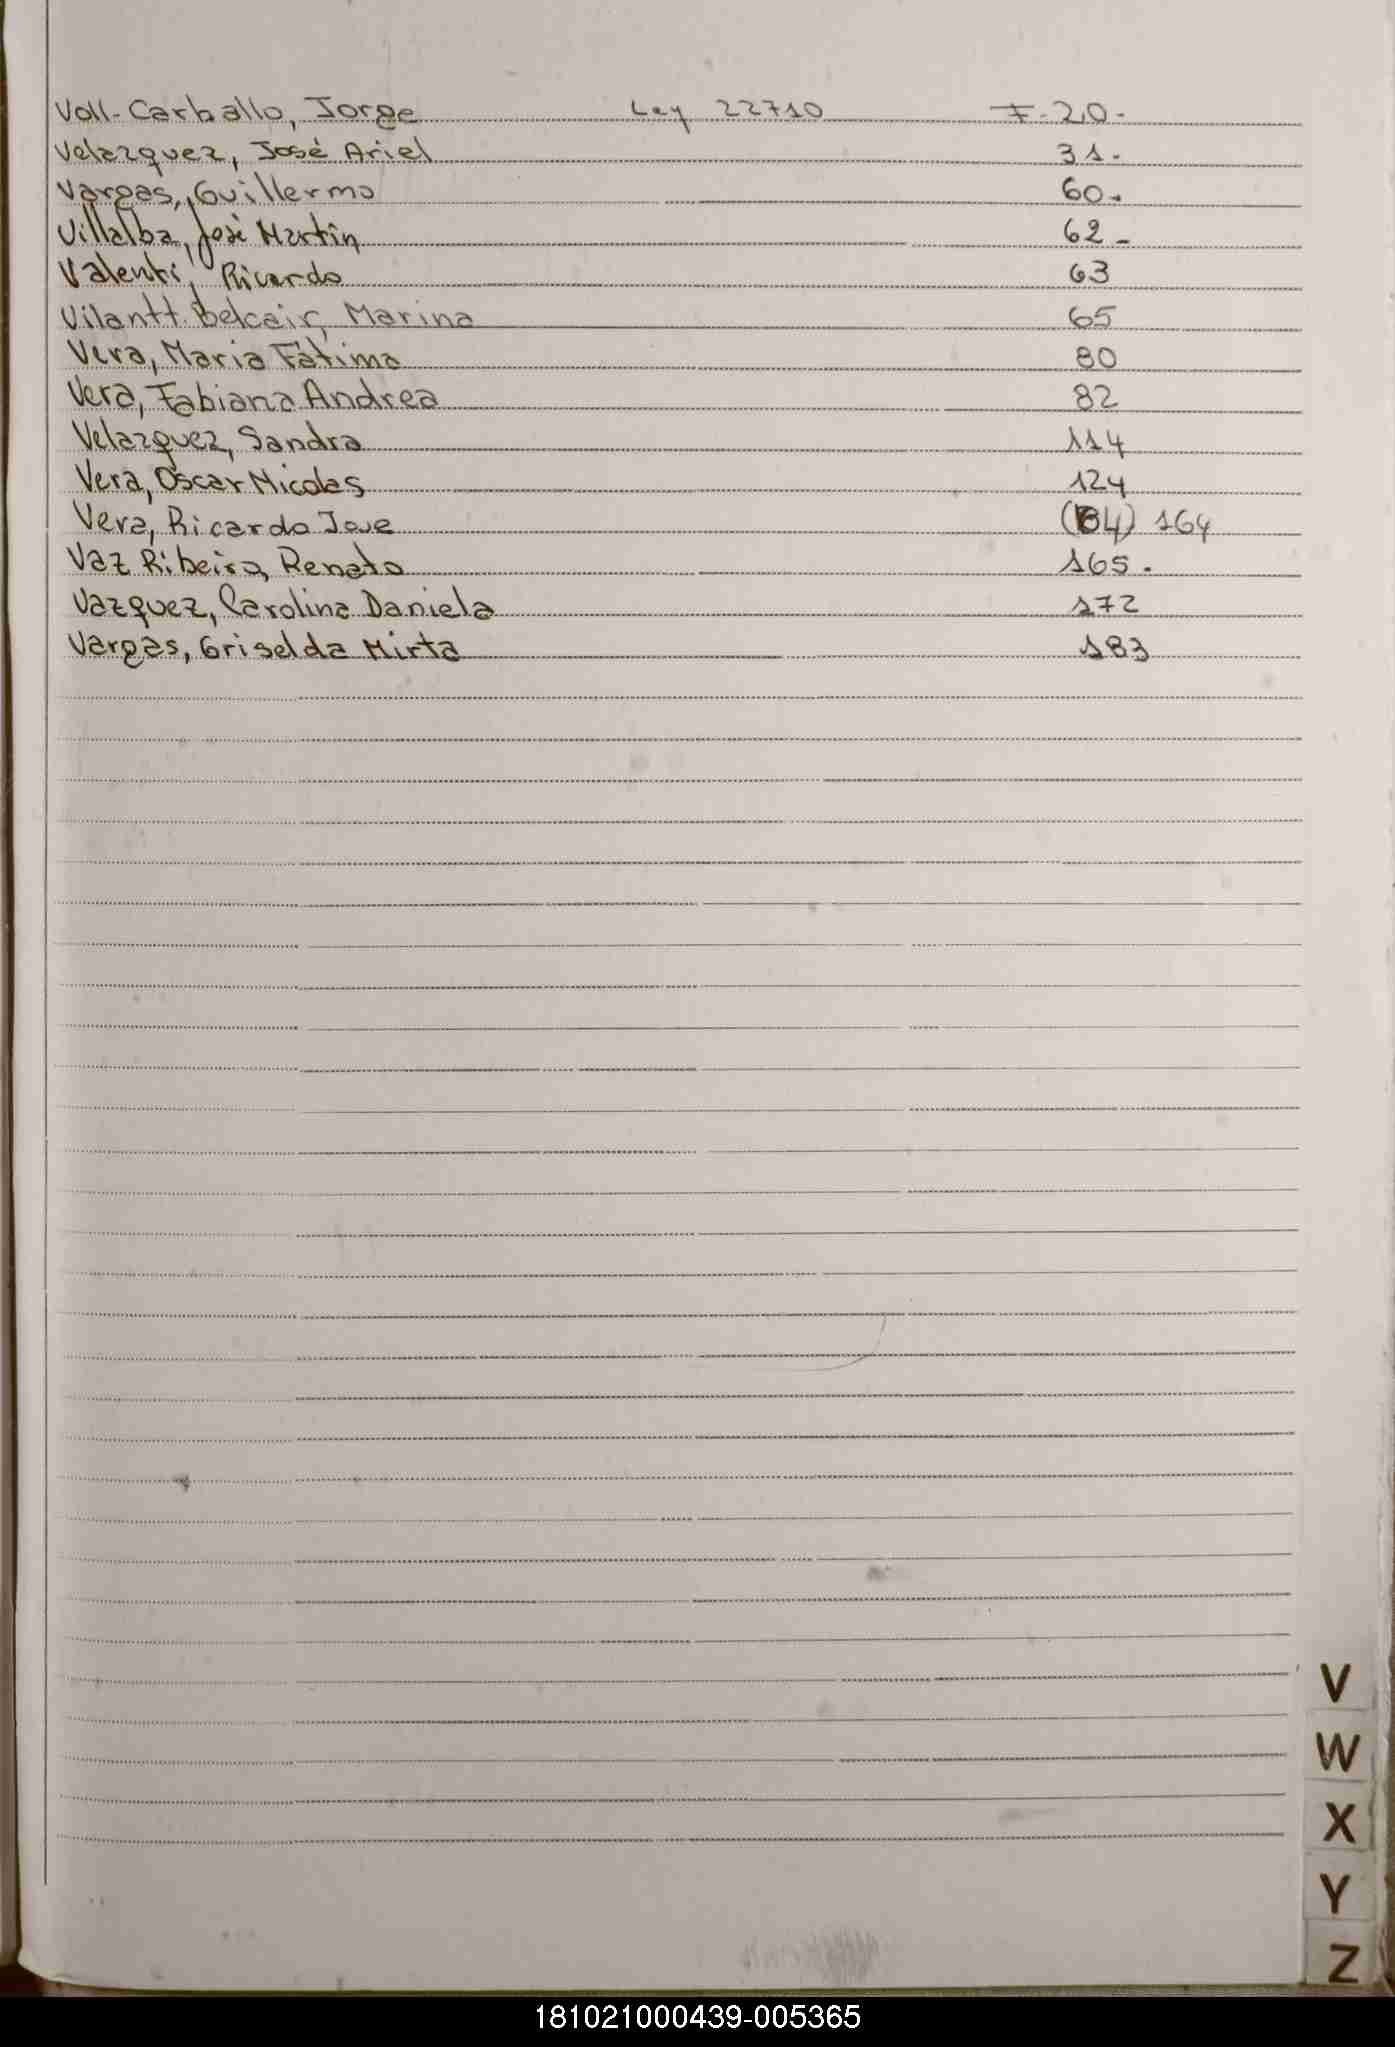 Voll-Carballo, Jorge Ley 22710 F. 20.-
Velazquez, José Ariel 31.-
Vargas, Guillermo 60.-
Villalba, José Martín 62-
Valenti, Ricardo 63
Vilantt. Belcair, Marina 65
Vera, Maria Fatima 80
Vera, Fabiana Andrea 82
Velazquez, Sandra 114
Vera, Oscar Nicolas 124
Vera, Ricardo Jose (64) 164
Vaz Ribeiro, Renato 165.
Vazquez, Carolina Daniela 172
Vargas, Griselda Mirta 183
V
W
X
Y
Z
181021000439-005365